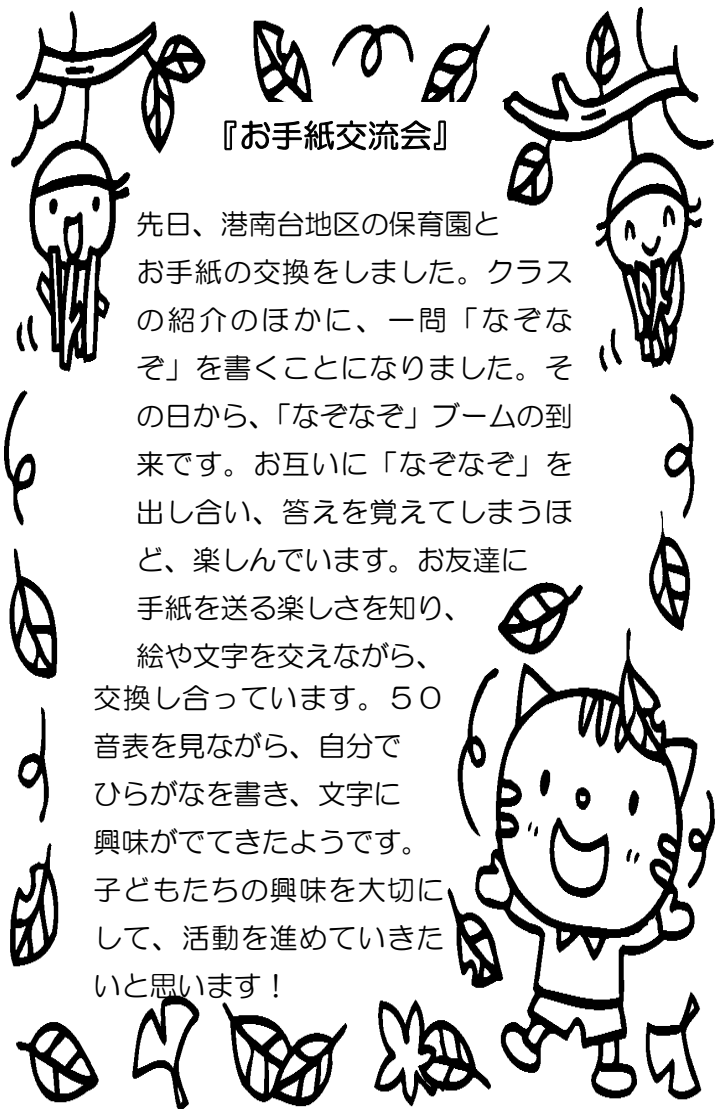 『お手紙交流会』
先日、港南台地区の保育園と
お手紙の交換をしました。クラス
の紹介のほかに、一問「なぞな
ぞ」を書くことになりました。そ
の日から、「なぞなぞ」ブームの到
来です。お互いに「なぞなぞ」を
出し合い、答えを覚えてしまうほ
ど、楽しんでいます。お友達に
手紙を送る楽しさを知り、
絵や文字を交えながら、
交換し合っています。５０
音表を見ながら、自分で
ひらがなを書き、文字に
興味がでてきたようです。
子どもたちの興味を大切に
して、活動を進めていきた
いと思います！